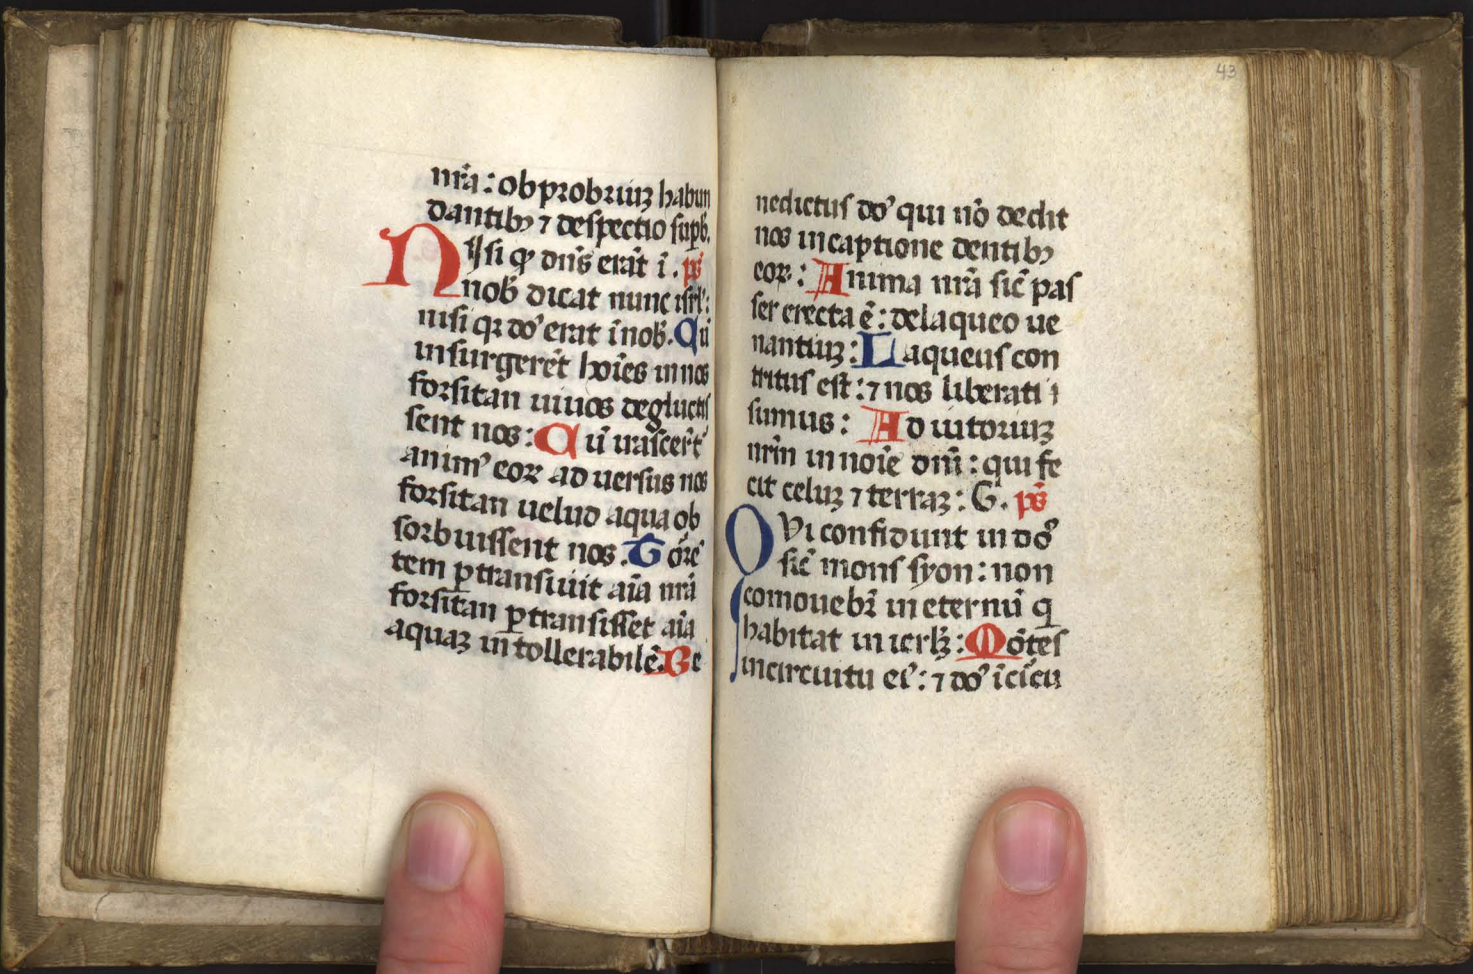 nr̃a : obprobriuꝫ habun
dantibꝰ ⁊ despectio supb.
Nisi qꝫ dñs erat ĩ . ps̃
nob̃ dicat nunc isrl̃ :
nisi qꝛ do᾽ erat ĩ nob̃. Cũ
insurgerẽt hoĩes in nos
forsitan uiuos deglutis
sent nos : Cũ irascer̃t᾽
anim᾽ eoꝝ ad uersus nos
forsitan uelud aqua ob
sorbuissent nos . Tor̃e
tem ꝑtransiuit aĩa nr̃a
forsitan ꝑtransisset aĩa
aquaꝫ intollerabilẽ. Be
43
nedictus do᾽ qui nõ dedit
nos in captione dentibꝰ
eoꝝ : Anima nr̃a sic̃ pas
ser erecta ẽ : de laqueo ue
nantiuꝫ : Laqueus con
tritus est : ⁊ nos liberati
sumus : Ad iutoriuꝫ
nrm̃ in noĩe dnĩ : qui fe
cit celuꝫ ⁊ terraꝫ : G. ps̃
QVi confidunt in do᾽
sic̃ mons syon : non
comouebꝛ̃ in eternũ q̱
habitat in ierlꝫ̃ : Mõtes
in circuitu ei᾽ : ⁊ do᾽ ĩ cĩcu